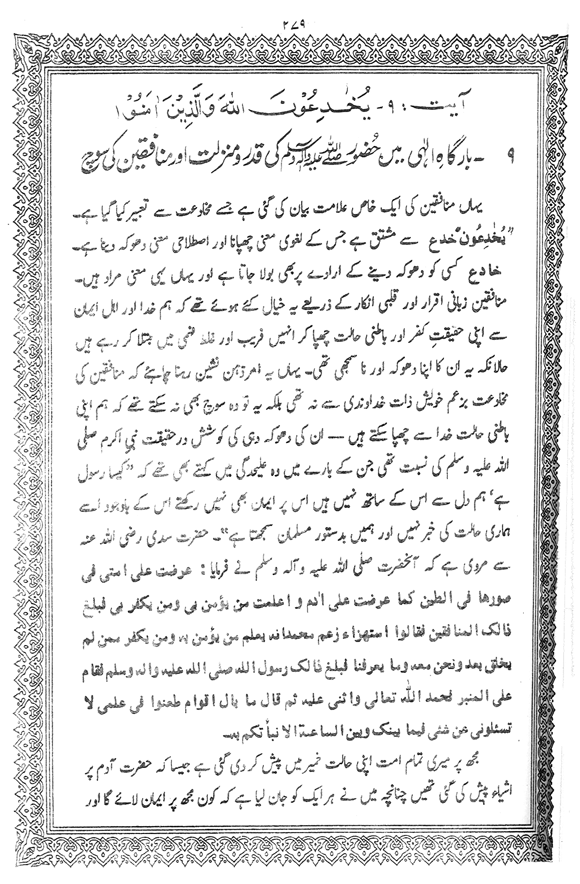 ۲۷۹
آیت : ۹ - یُخٰدِعُوْنَ اللهَ وَالَّذِیْنَ اٰمَنُوْا
۹ - بارگاہِ الٰہی میں حُضور صلی اللہ علیہ وسلم کی قدر و منزلت اور منافقین کی سوچ
یہاں منافقین کی ایک خاص علامت بیان کی گئی ہے جسے مخادعت سے تعبیر کیا گیا ہے۔
"یُخٰدِعُون" خدع سے مشتق ہے جس کے لغوی معنی چھپانا اور اصطلاحی معنی دھوکہ دینا ہے۔
خادع کسی کو دھوکہ دینے کے ارادے پر بھی بولا جاتا ہے اور یہاں یہی معنی مراد ہیں۔
منافقین زبانی اقرار اور قلبی انکار کے ذریعے یہ خیال کئے ہوئے تھے کہ ہم خدا اور اہل ایمان
سے اپنی حقیقتِ کفر اور باطنی حالت چھپا کر انہیں فریب اور غلط فہمی میں مبتلا کر رہے ہیں
حالانکہ یہ ان کا اپنا دھوکہ اور نا سمجھی تھی۔ یہاں یہ امر ذہن نشین رہنا چاہئے کہ منافقین کی
مخادعت بزعم خویش ذات خداوندی سے نہ تھی بلکہ یہ تو وہ سوچ بھی نہ سکتے تھے کہ ہم اپنی
باطنی حالت خدا سے چھپا سکتے ہیں — ان کی دھوکہ دہی کی کوشش در حقیقت نبی اکرم صلی
اللہ علیہ وسلم کی نسبت تھی جن کے بارے میں وہ علیحدگی میں کہتے بھی تھے کہ "کیسا رسول
ہے، ہم دل سے اس کے ساتھ نہیں ہیں اس پر ایمان بھی نہیں رکھتے اس کے باوجود اسے
ہماری حالت کی خبر نہیں اور ہمیں بدستور مسلمان سمجھتا ہے"۔ حضرت سدی رضی اللہ عنہ
سے مروی ہے کہ آنحضرت صلی اللہ علیہ و آلہ وسلم نے فرمایا : عرضت علی امتی فی
صورها فی الطین کما عرضت علی ادم و اعلمت من یؤمن بی ومن یکفر بی فبلغ
ذالک المنافقین فقالوا استهزاء زعم محمد انه یعلم من یؤمن به ومن یکفر ممن لم
یخلق بعد ونحن معه وما یعرفنا فبلغ ذالک رسول الله صلی الله علیه واله وسلم فقام
علی المنبر فحمد الله تعالی واثنی علیه ثم قال ما بال اقوام طعنوا فی علمی لا
تسئلونی عن شئی فیما بینک وبین الساعة الا نبأتکم به۔
مجھ پر میری تمام امت اپنی حالت خمیر میں پیش کر دی گئی ہے جیسا کہ حضرت آدم پر
اشیاء پیش کی گئی تھیں چنانچہ میں نے ہر ایک کو جان لیا ہے کہ کون مجھ پر ایمان لائے گا اور